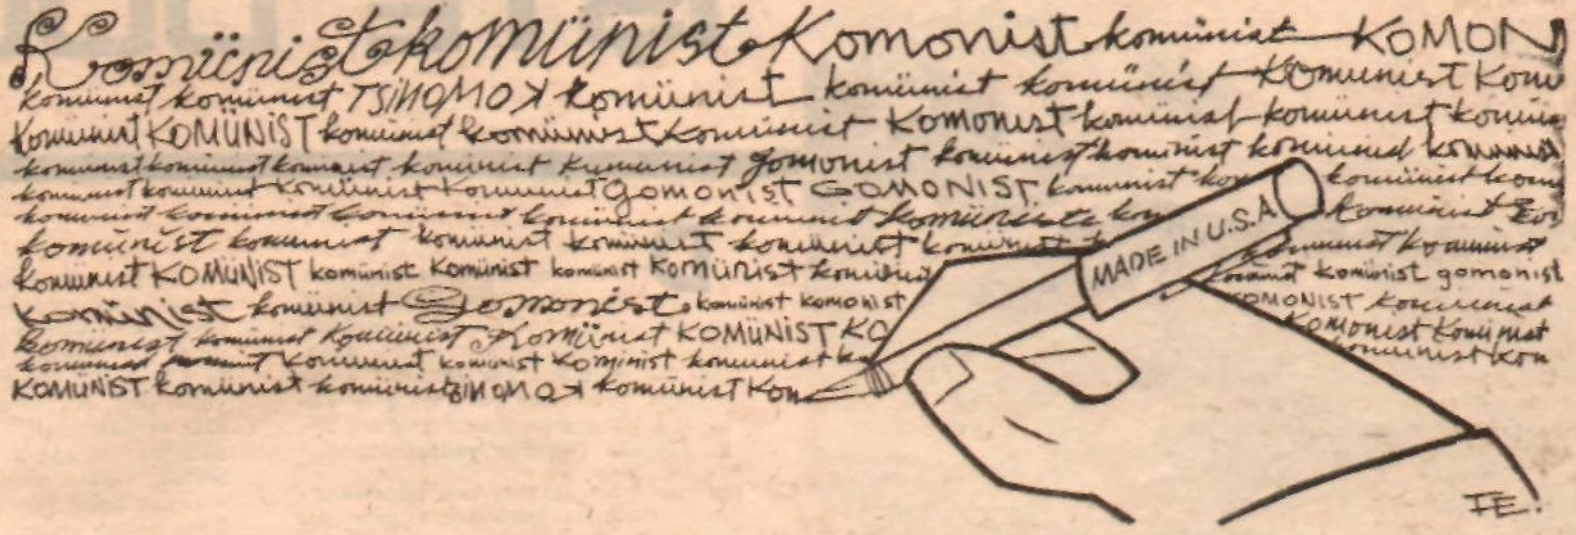 Komünist komünist Komonist komünist KOMON
komünist komünist TSİNOMOK komünist komünist komünist Komünist Komü
Komünist KOMÜNİST komünist komünist Komünist Komonist komünist komünist komün
komünist komünist komünist komünist Komünist gomonist komünist komünist komünist komünist
komünist komünist Komünist Komünist gomonist GOMONİST komünist kom komünist kom
komünist komünist komünist komünist komünist komüniste kom Komünist kom
komünist komünist komünist komünist komünist komünist komünist komünist
Komünist KOMÜNİST komünist Komünist komünist KOMÜNİST komünist komünist komünist gomonist
MADE IN U.S.A
komünist komünist Gomonist komünist komonist KOMONİST komünist
komünist komünist komünist Komünist KOMÜNİST KO Komonist Komünist
komünist komünist Komünist komünist Kominist komünist ko komünist kom
KOMÜNİST komünist komünist TSİNOMOK komünist Kom
TE!